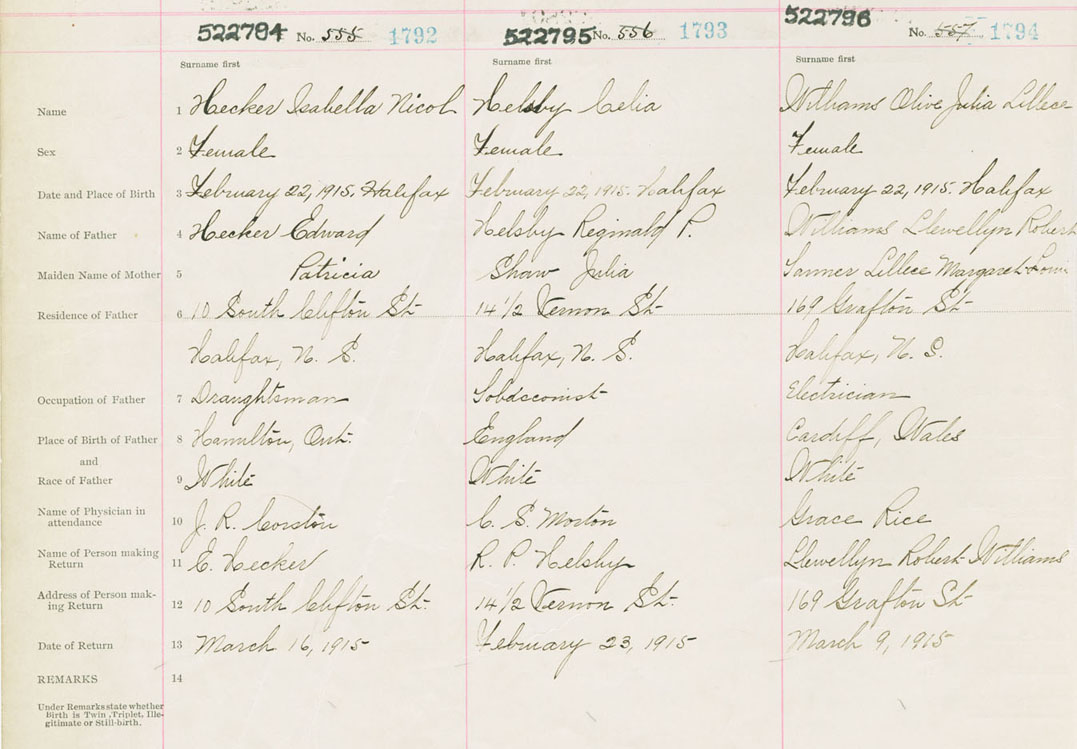 522794 No. 555 1792 522795 No. 556 1793 522796 No. 557 1794
Surname first Surname first Surname first
Name 1 Hecker Isabella Nicol Helsby Celia Williams Olive Julia Lillece
Sex 2 Female Female Female
Date and Place of Birth 3 February 22, 1915. Halifax February 22, 1915. Halifax February 22, 1915. Halifax
Name of Father 4 Hecker Edward Helsby Reginald P. Williams Llewellyn Robert
Maiden Name of Mother 5 Patricia Shaw Julia Lillece Margaret
Residence of Father 6 10 South Clifton St. 14 1/2 Vernon St. 169 Grafton St.
Halifax, N. S. Halifax, N. S. Halifax, N. S.
Occupation of Father 7 Draughtsman Tobacconist Electrician
Place of Birth of Father 8 Hamilton, Ont. England Cardiff, Wales
and
Race of Father 9 White White White
Name of Physician in
attendance 10 J. R. Corston C. S. Morton Grace Rice
Name of Person making
Return 11 E. Hecker R. P. Helsby Llewellyn Robert Williams
Address of Person mak-
ing Return 12 10 South Clifton St. 14 1/2 Vernon St. 169 Grafton St.
Date of Return 13 March 16, 1915 February 23, 1915 March 9, 1915
REMARKS 14
Under Remarks state whether
Birth is Twin, Triplet, Ille-
gitimate or Still-birth.